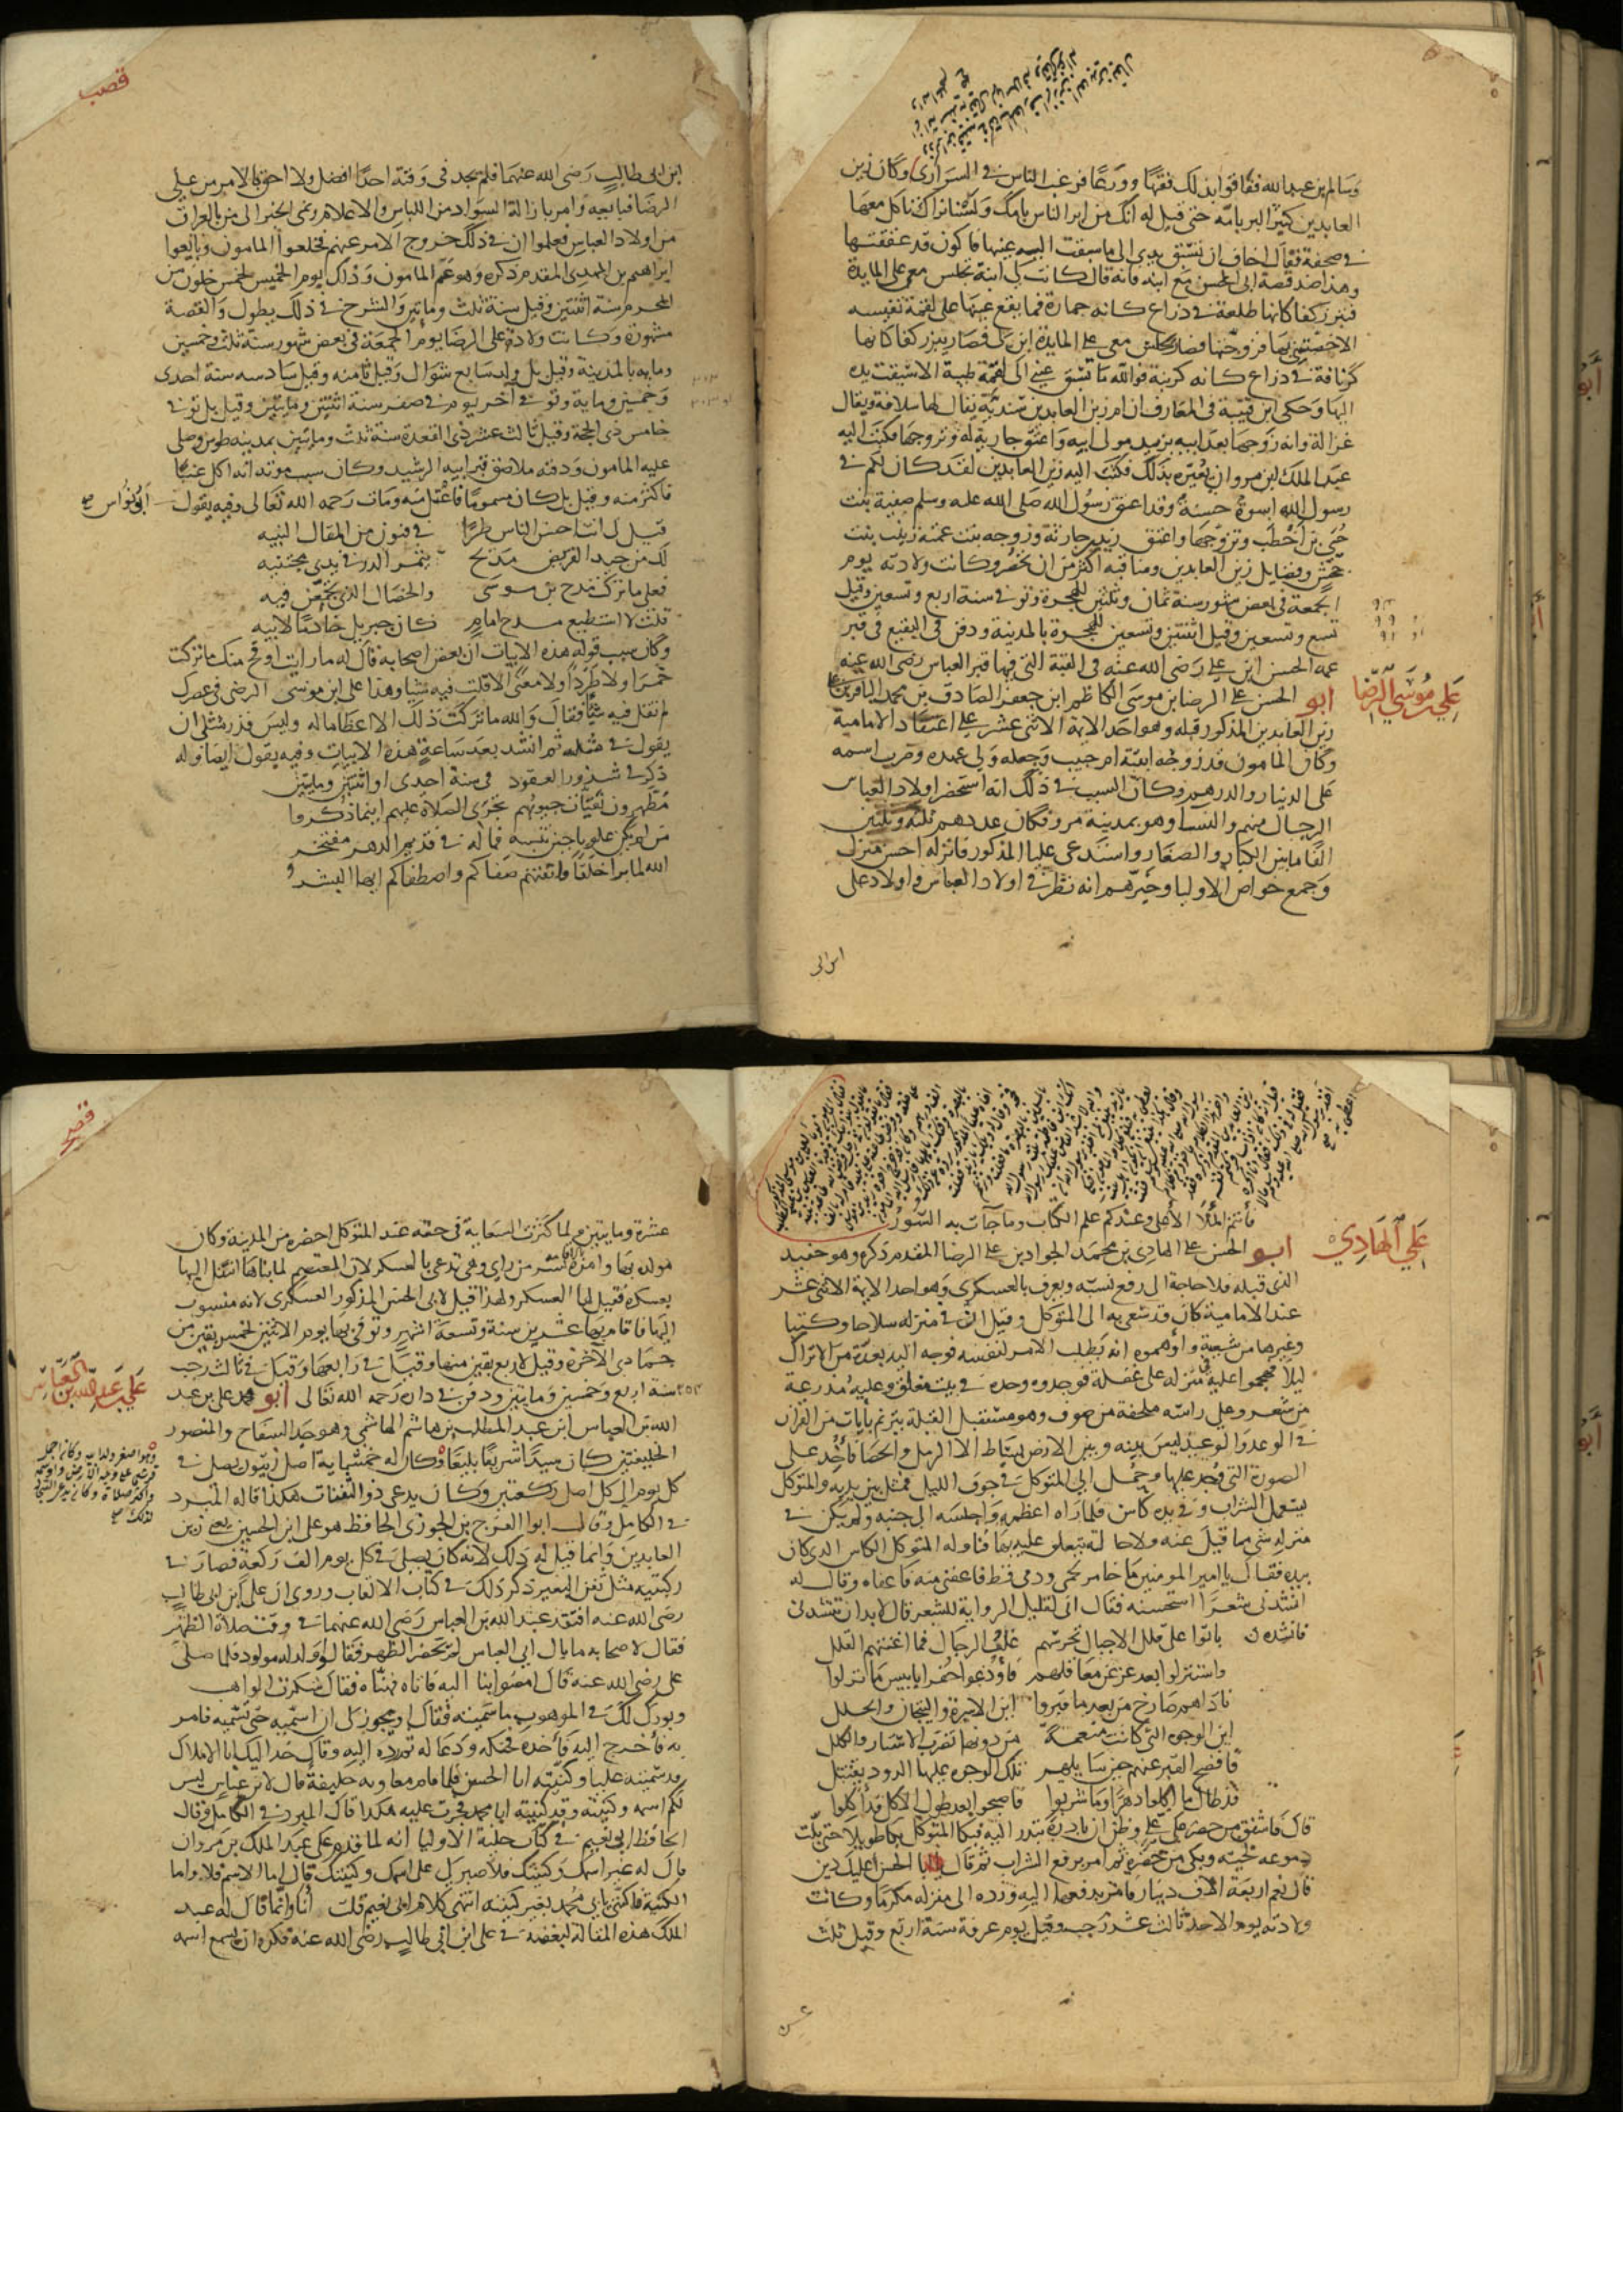 وسالم بن عبد الله ففاقوا بذلك فقها وورعا فرغب الناس في السراري وكان زين
العابدين كثير البر بامه حتى قيل له انك من ابر الناس بامك ولسنا نراك تاكل معها
في صحفة فقال اخاف ان تسبق يدي الى ما سبقت اليه عينها فاكون قد عققتها
وهذا ضد قصة ابي الحسن مع ابنه فانه قال كانت لي ابنة تجلس معي على المايدة
فتبرز كفا كانها طلعة في ذراع كانه جمارة فما تقع عينها على لقمة نفيسه
الا خصتني بها فزوجتها فصار يجلس معي على المايدة ابن لي فصار يبرز كفا كانها
كرنافة في ذراع كانه كربة فوالله ما تسبق عيني الى لقمة طيبة الا سبقت يده
اليها وحكى ابن قتيبة في المعارف ان ام زين العابدين سندية يقال لها سلافة ويقال
غزالة وانه زوجها بعد ابيه بزبيد مولى ابيه واعتق جارية له وتزوجها فكتب اليه
عبد الملك ابن مروان يعيره بذلك فكتب اليه زين العابدين لقد كان لكم في
رسول الله اسوة حسنة وقد اعتق رسول الله صلى الله عليه وسلم صفية بنت
حيي بن اخطب وتزوجها واعتق زيد بن حارثة وزوجه بنت عمته زينب بنت
جحش وفضايل زين العابدين ومناقبه اكثر من ان تحصر وكانت ولادته يوم
الجمعة في بعض شهور سنة ثمان وثلثين للهجرة وتوفى سنة اربع وتسعين وقيل
تسع وتسعين وقيل اثنتين وتسعين للهجرة بالمدينة ودفن في البقيع في قبر
عمه الحسن ابن علي رضي الله عنه في القبة التي فيها قبر العباس رضي الله عنه
علي بن موسى الرضا
ابو الحسن علي الرضا بن موسى الكاظم ابن جعفر الصادق بن محمد الباقر بن علي
زين العابدين المذكور قبله وهو احد الايمة الاثني عشر على اعتقاد الامامية
وكان المامون قد زوجه ابنته ام حبيب وجعله ولي عهده وضرب اسمه
على الدينار والدرهم وكان السبب في ذلك انه استحضر اولاد العباس
الرجال منهم والنسا وهو بمدينة مرو فكان عددهم ثلثه وثلثين
الفا ما بين الكبار والصغار واستدعى عليا المذكور فانزله احسن منزل
وجمع خواص الاوليا وخبرهم انه نظر في اولاد العباس واولاد علي
ابن ابي
ابن ابي طالب رضي الله عنهما فلم يجد في وقته احدا افضل ولا احق بالامر من علي
الرضا فبايعه وامر بازالة السواد من اللباس والاعلام ونمى الخبر الى من بالعراق
من اولاد العباس فعلموا ان في ذلك خروج الامر عنهم فخلعوا المامون وبايعوا
ابراهيم بن المهدي المقدم ذكره وهو عم المامون وذلك يوم الخميس لخمس خلون من
المحرم سنة اثنتين وقيل سنة ثلث ومايتين والشرح في ذلك يطول والقصة
مشهورة وكانت ولادة علي الرضا يوم الجمعة في بعض شهور سنة ثلث وخمسين
ومايه بالمدينة وقيل بل ولد سابع شوال وقيل ثامنه وقيل سادسه سنة احدى
وخمسين وماية وتوفى في اخر يوم من صفر سنة اثنتين ومايتين وقيل بل توفى
خامس ذي الحجة وقيل ثالث عشر ذي القعدة سنة ثلث ومايتين بمدينه طوس وصلى
عليه المامون ودفنه ملاصق قبر ابيه الرشيد وكان سبب موته انه اكل عنبا
فاكثر منه وقيل بل كان مسموما فاعتل منه ومات رحمه الله تعالى وفيه يقول ابو نواس صح
قيل لي انت احسن الناس طرا في فنون من المقال النبيه
لك من جيد القريض مديح يثمر الدر في يدي مجتنيه
فعلى ما تركت مدح بن موسى والخصال التي تجمعن فيه
قلت لا استطيع مدح امام كان جبريل خادما لابيه
وكان سبب قوله هذه الابيات ان بعض اصحابه قال له ما رايت اوقح منك ما تركت
خمرا ولا طردا ولا معنى الا قلت فيه شيا وهذا علي ابن موسى الرضى في عصرك
لم تقل فيه شيا فقال والله ما تركت ذلك الا اعظاما له وليس قدر مثلي ان
يقول في مثله ثم انشد بعد ساعة هذه الابيات وفيه يقول ايضا وله
ذكر في شذور العقود في سنة احدى او اثنتين ومايتين
مطهرون نقيات جيوبهم تجرى الصلاة عليهم اينما ذكروا
من لم يكن علويا حين تنسبه فما له في قديم الدهر مفتخر
الله لما برا خلقا فاتقنهم صفاكم واصطفاكم ايها البشر
فانتم الملأ الاعلى وعندكم علم الكتاب وما جآت به السور
علي الهادي
ابو الحسن علي الهادي بن محمد الجواد بن علي الرضا المقدم ذكره وهو حفيد
الذي قبله فلا حاجة الى رفع نسبه ويعرف بالعسكري وهو احد الايمة الاثني عشر
عند الامامية كان قد سعي به الى المتوكل وقيل ان في منزله سلاحا وكتبا
وغيرها من شيعته واوهموه انه يطلب الامر لنفسه فوجه اليه بعدة من الاتراك
ليلا فهجموا عليه في منزله على غفلة فوجدوه وحده في بيت مغلق وعليه مدرعة
من شعر وعلى راسه ملحفة من صوف وهو مستقبل القبلة يترنم بايات من القران
في الوعد والوعيد ليس بينه وبين الارض بساط الا الرمل والحصا فاخذ على
الصورة التي وجد عليها وحمل الى المتوكل في جوف الليل فمثل بين يديه والمتوكل
يستعمل الشراب وفي يده كاس فلما راه اعظمه واجلسه الى جنبه ولم يكن في
منزله شي مما قيل عنه ولا حالة يتعلق عليه بها فناوله المتوكل الكاس الذي كان
بيده فقال يا امير المومنين ما خامر لحمي ودمي قط فاعفني منه فاعفاه وقال له
انشدني شعرا استحسنه فقال اني لقليل الرواية للشعر قال لا بد ان تنشدني
فانشده باتوا على قلل الاجبال تحرسهم غلب الرجال فما اغنتهم القلل
واستنزلوا بعد عز عن معاقلهم فاودعوا حفرا يا بيس ما نزلوا
ناداهم صارخ من بعد ما قبروا اين الاسرة والتيجان والحلل
اين الوجوه التي كانت منعمة من دونها تضرب الاستار والكلل
فافصح القبر عنهم حين سايلهم تلك الوجوه عليها الدود يقتتل
قد طال ما اكلوا دهرا وما شربوا فاصبحوا بعد طول الاكل قد اكلوا
قال فاشفق من حضر على علي وظن ان بادرة تبدر اليه فبكا المتوكل بكا طويلا حتى بلت
دموعه لحيته وبكى من حضره ثم امر برفع الشراب ثم قال يابا الحسن اعليك دين
قال نعم اربعة الاف دينار فامر بدفعها اليه ورده الى منزله مكرما وكانت
ولادته يوم الاحد ثالث عشر رجب وقيل يوم عرفة سنة اربع وقيل ثلث
عشرة ومايتين ولما كثرت السعاية في حقه عند المتوكل احضره من المدينة وكان
مولده بها واقره بسر من راى وهي تدعى بالعسكر لان المعتصم لما بناها انتقل اليها
بعسكره فقيل لها العسكر ولهذا قيل لابي الحسن المذكور العسكري لانه منسوب
اليها فاقام بها عشرين سنة وتسعة اشهر وتوفى بها يوم الاثنين لخمس بقين من
جمادى الاخرة وقيل لاربع بقين منها وقيل في رابعها وقيل في ثالث رجب
سنة اربع وخمسين ومايتين ودفن في داره رحمه الله تعالى ابو محمد علي بن عبد
علي بن عبد الله بن العباس
الله بن العباس ابن عبد المطلب بن هاشم الهاشمي وهو جد السفاح والمنصور
الخليفتين كان سيدا شريفا بليغا وكان له خمسماية اصل زيتون يصلي في
كل يوم الى كل اصل ركعتين وكان يدعى ذو الثفنات هكذا قاله المبرد
في الكامل وقال ابو الفرج بن الجوزي الحافظ هو علي ابن الحسين يعني زين
العابدين وانما قيل له ذلك لانه كان يصلي في كل يوم الف ركعة فصار في
ركبتيه مثل ثفن البعير ذكر ذلك في كتاب الالقاب وروي ان علي ابن ابي طالب
رضي الله عنه افتقد عبد الله بن العباس رضي الله عنهما في وقت صلاة الظهر
فقال لاصحابه ما بال ابي العباس لم يحضر الظهر فقالوا ولد له مولود فلما صلى
علي رضي الله عنه قال امضوا بنا اليه فاتاه فهناه فقال شكرت الواهب
وبورك لك في الموهوب ما سميته فقال او يجوز لي ان اسميه حتى تسميه فامر
به فاخرج اليه فاخذه فحنكه ودعا له ثم رده اليه وقال خذ اليك ابا الاملاك
قد سميته عليا وكنيته ابا الحسن فلما قام معاويه خليفة قال لابن عباس ليس
لكم اسمه وكنيته وقد كنيته ابا محمد فجرت عليه هكذا قال المبرد في الكامل وقال
الحافظ ابي نعيم في كتاب حلية الاوليا انه لما قدم على عبد الملك بن مروان
قال له غير اسمك وكنيتك فلا صبر لي على اسمك وكنيتك قال اما الاسم فلا واما
الكنية فاكتني بابي محمد بغير كنيته انتهى كلام ابي نعيم قلت انا وانما قال له عبد
الملك هذه المقالة لبغضه في علي ابن ابي طالب رضي الله عنه فكره ان يسمع اسمه